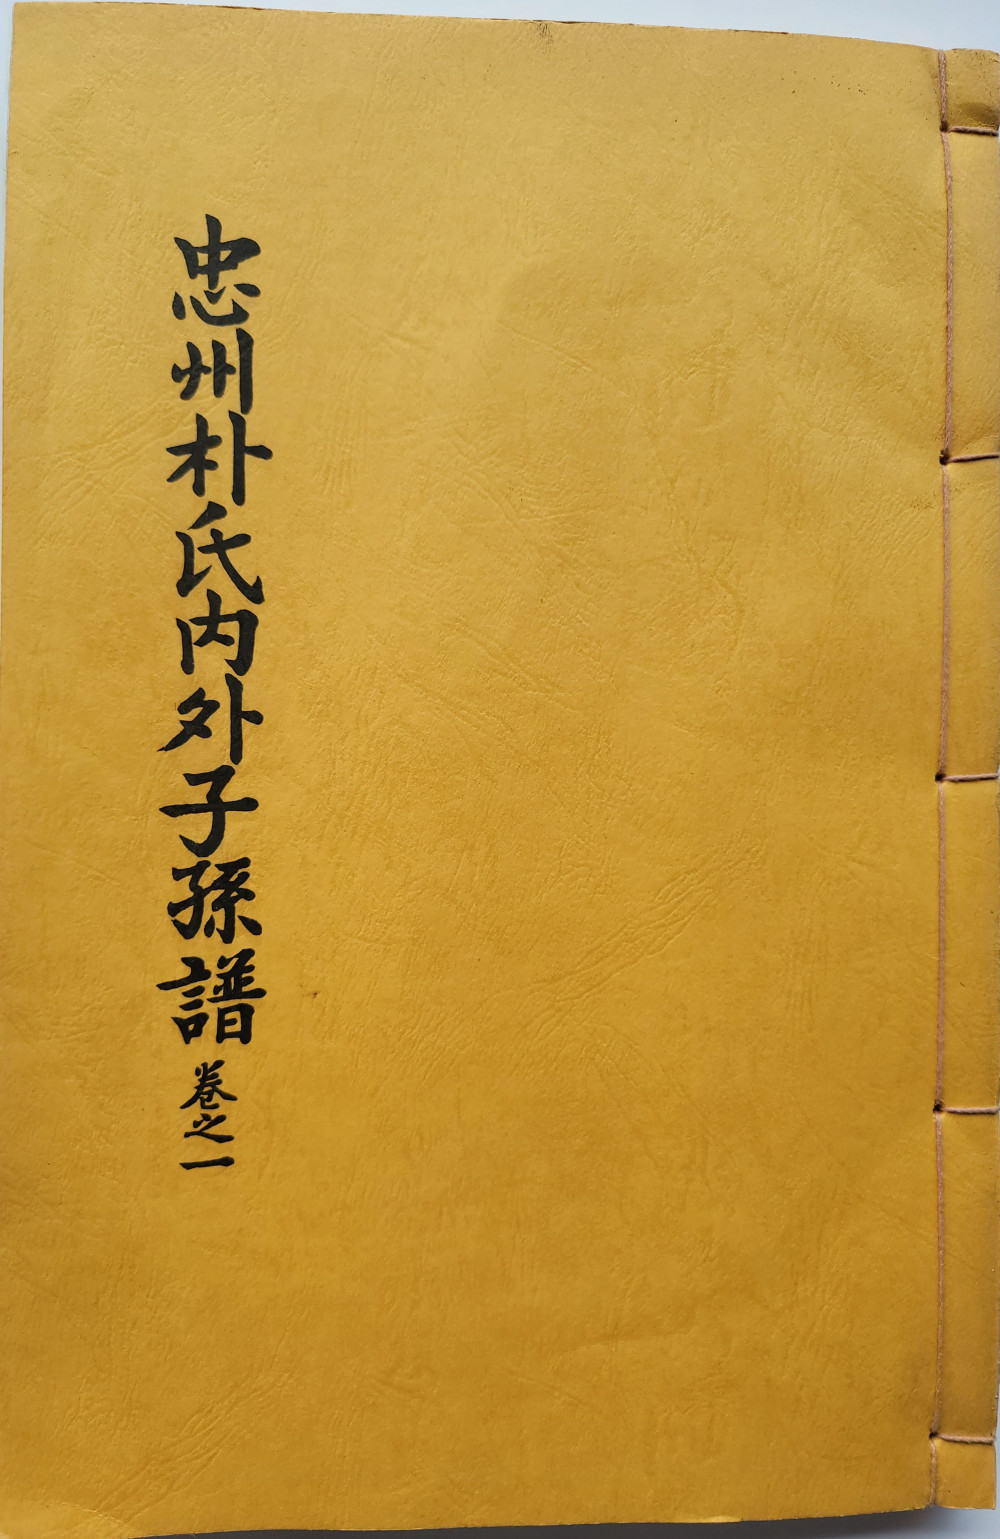 忠州朴氏内外子孫譜 卷之一